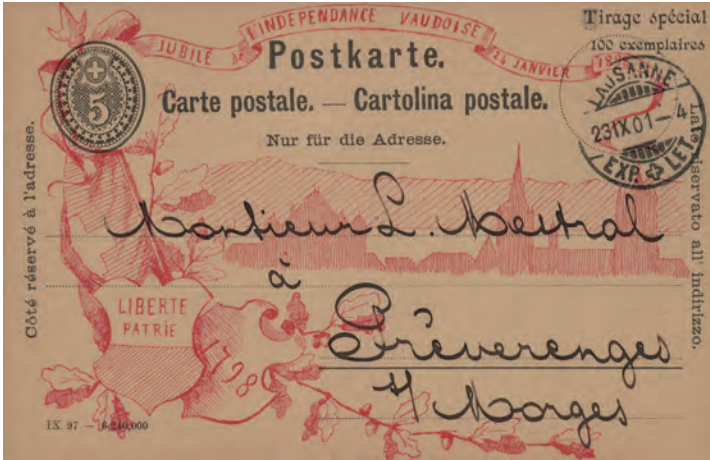 JUBILÉ de L'INDEPENDANCE VAUDOISE 24 JANVIER 1898
Tirage spécial
100 exemplaires
Postkarte.
Carte postale. — Cartolina postale.
Nur für die Adresse.
5
LAUSANNE
23 IX 01 - 4
EXP. LET
Côté réservé à l'adresse.
Lato riservato all' indirizzo.
Monsieur L. Mestral
à
Préverenges
s/ Morges
LIBERTE
PATRIE
1798
IX 97 — 6,240,000